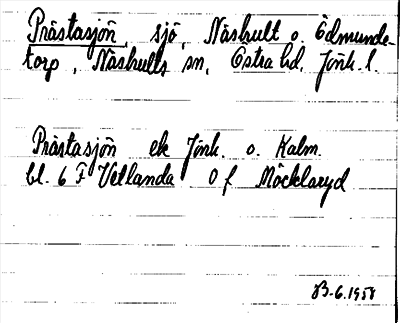 Prästasjön, sjö, Näshult o. Ödmunde-
torp, Näshults sn, Östra hd, Jönk. l.
Prästasjön ek Jönk. o. Kalm.
bl. 6 F Vetlanda Of Möcklaryd
B-6.1958